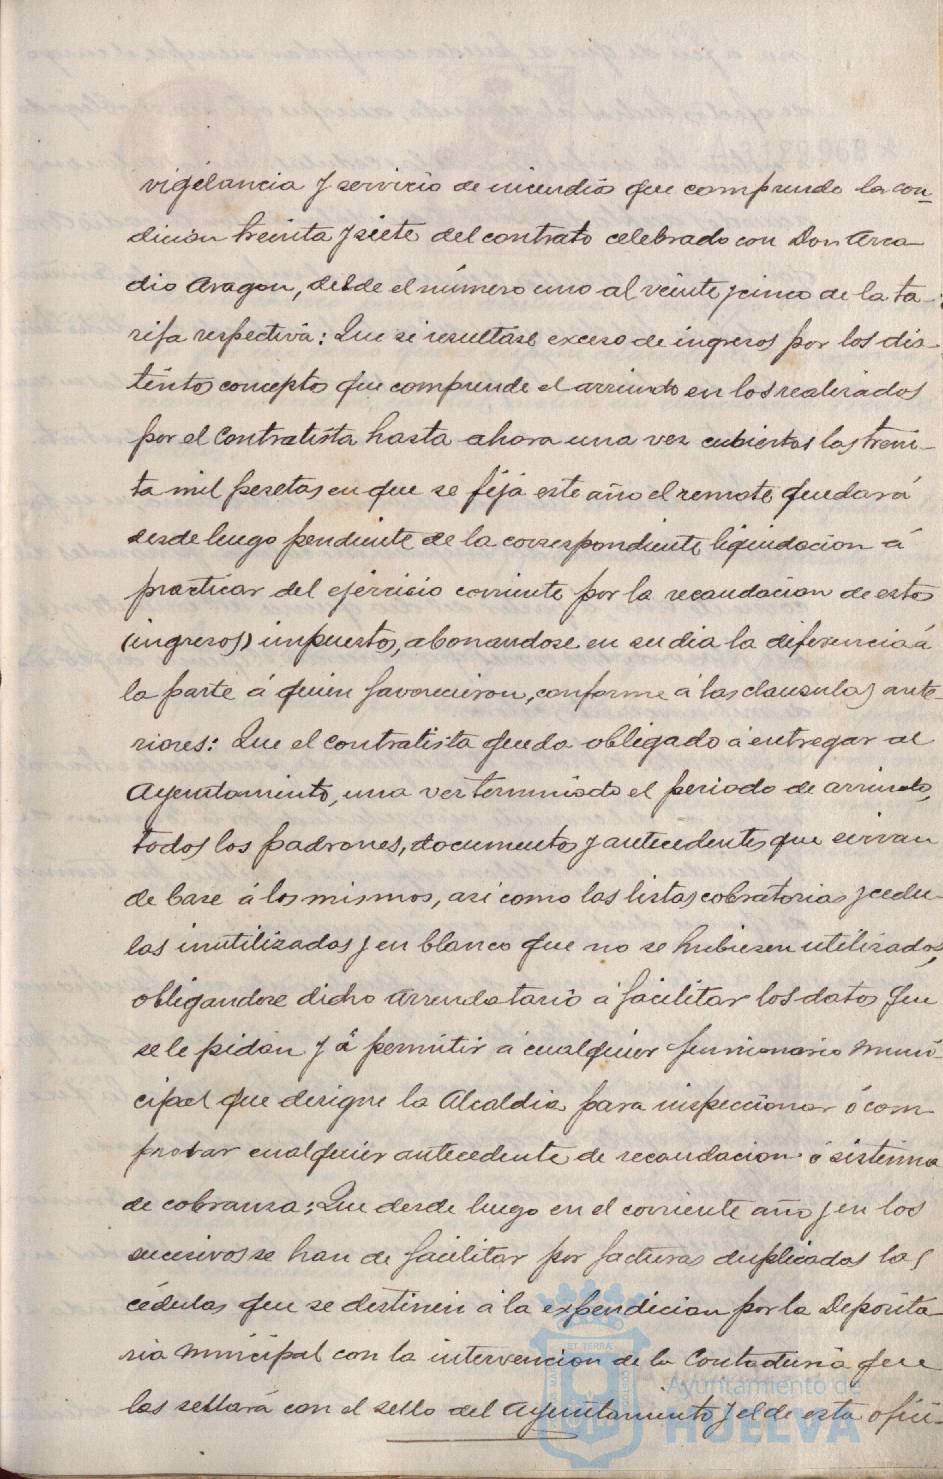 vigilancia y servicio de incendios que comprende la con-
dicion treinta y siete del contrato celebrado con Don Arca
dio Aragon, desde el número uno al veinte y cinco de la ta-
rifa respectiva: Que si resultase exceso de ingresos por los dis-
tintos conceptos que comprende el arriendo en los realizados
por el Contratista hasta ahora una vez cubiertas las trein-
ta mil pesetas en que se fija este año el remate, quedará
desde luego pendiente de la correspondiente liquidacion á
practicar del ejercicio corriente por la recaudacion de estos
(ingresos) impuestos, abonandose en su dia la diferencia á
la parte á quien favorecieron, conforme á las clausulas ante-
riores: Que el contratista queda obligado á entregar al
Ayuntamiento, una vez terminado el periodo de arriendo,
todos los padrones, documentos y antecedentes que sirvan
de base á los mismos, asi como las listas cobratorias y cedu-
las inutilizadas y en blanco que no se hubiesen utilizado,
obligandose dicho arrendatario á facilitar los datos que
se le pidan y á permitir á cualquier funcionario muni-
cipal que designe la Alcaldia para inspeccionar ó com-
probar cualquier antecedente de recaudacion ó sistema
de cobranza: Que desde luego en el corriente año y en los
sucesivos se han de facilitar por facturas duplicadas las
cédulas que se destinen á la expendicion por la Deposita-
ria Municipal con la intervencion de la Contaduria que
las sellará con el sello del Ayuntamiento y el de esta ofici-
Ayuntamiento de
HUELVA